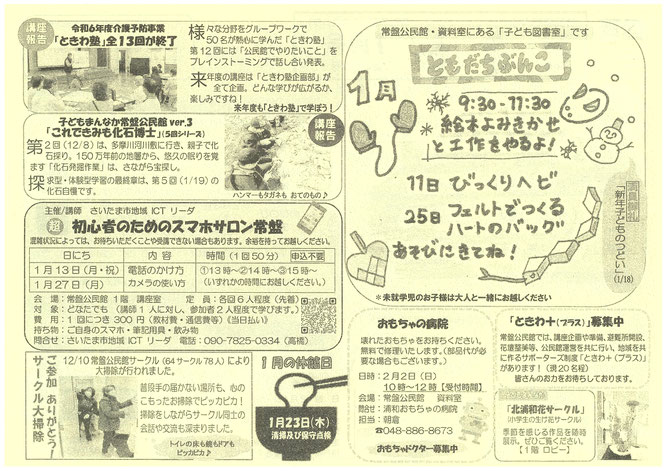 講座報告
令和6年度介護予防事業
「ときわ塾」全13回が終了
様々な分野をグループワークで
50名が熱心に学んだ「ときわ塾」
第12回には「公民館でやりたいこと」を
ブレインストーミングで話し合い発表。
来年度の講座は「ときわ塾企画部」が
全て企画。どんな学びが広がるか、
楽しみですね!
来年度も「ときわ塾」で学ぼう!
子どもまんなか常盤公民館 ver.3
「これできみも化石博士」(5回シリーズ)
講座報告
第2回(12/8)は、多摩川河川敷に行き、親子で化
石採り。150万年前の地層から、悠久の眠りを覚
ます「化石発掘作業」は、さながら宝探し。
探求型・体験型学習の最終章は、第5回(1/19)の
化石自慢です。
ハンマーもタガネも おてのもの♪
主催/講師 さいたま市地域 ICT リーダ
超 初心者のためのスマホサロン常盤
混雑状況によっては、お待ちいただくことや受講できない場合もあります。余裕を持ってお越しください。
日にち 内容 時間(1回50分) 申込不要
1月13日(月・祝) 電話のかけ方 ①13時~②14時~③15時~
1月27日(月) カメラの使い方 (いずれかの時間にお越しください。)
会場:常盤公民館 1階 講座室 定員:各回6人程度(先着)
対象:どなたでも(講師1人に対し、参加者2人程度で学びます。)
費用:1回につき300円(教材費・通信費等)(当日払い)
持ち物:ご自身のスマホ・筆記用具・飲み物
問合せ:さいたま市地域 ICT リーダ 電話:090-7825-0334(高橋)
ご参加 ありがとう?
サークル大掃除
12/10 常盤公民館サークル(64サークル78人)により
大掃除が行われました。
普段手の届かない場所も、心の
こもったお掃除でピッカピカ!
掃除をしながらサークル同士の
会話や交流も深まりました。
トイレの床も鏡もドアも
ピッカピカ♪
1月の休館日
1月23日(木)
清掃及び保守点検
常盤公民館・資料室にある「子ども図書室」です
ともだちぶんこ
1月
9:30-11:30
絵本よみきかせ
と工作をやるよ!
11日 びっくりヘビ
25日 フェルトでつくる
ハートのバッグ
あそびにきてね!
満員御礼
「新年子どものつどい」
(1/18)
*未就学児のお子様は大人と一緒にお越しください
おもちゃの病院
壊れたおもちゃをお持ちください。
無料で修理いたします。(部品代が必
要な場合もございます。)
日時:2月2日(日)
10時~12時【受付時間】
会場:常盤公民館 資料室
問合せ:浦和おもちゃの病院
担当:朝倉
☎048-886-8673
おもちゃドクター募集中
「ときわ+(プラス)」募集中
常盤公民館では、講座企画や準備、避難所開設、
花壇整美等、公民館運営を共に行い、地域を共
に作るサポーターズ制度「ときわ+(プラス)」
があります!(現20名程)
皆さんのお力をお待ちしております。
「北浦和花サークル」
(小学生の生け花サークル)
季節を感じる作品を随時
展示。ぜひご覧ください。
【1階 ロビー】